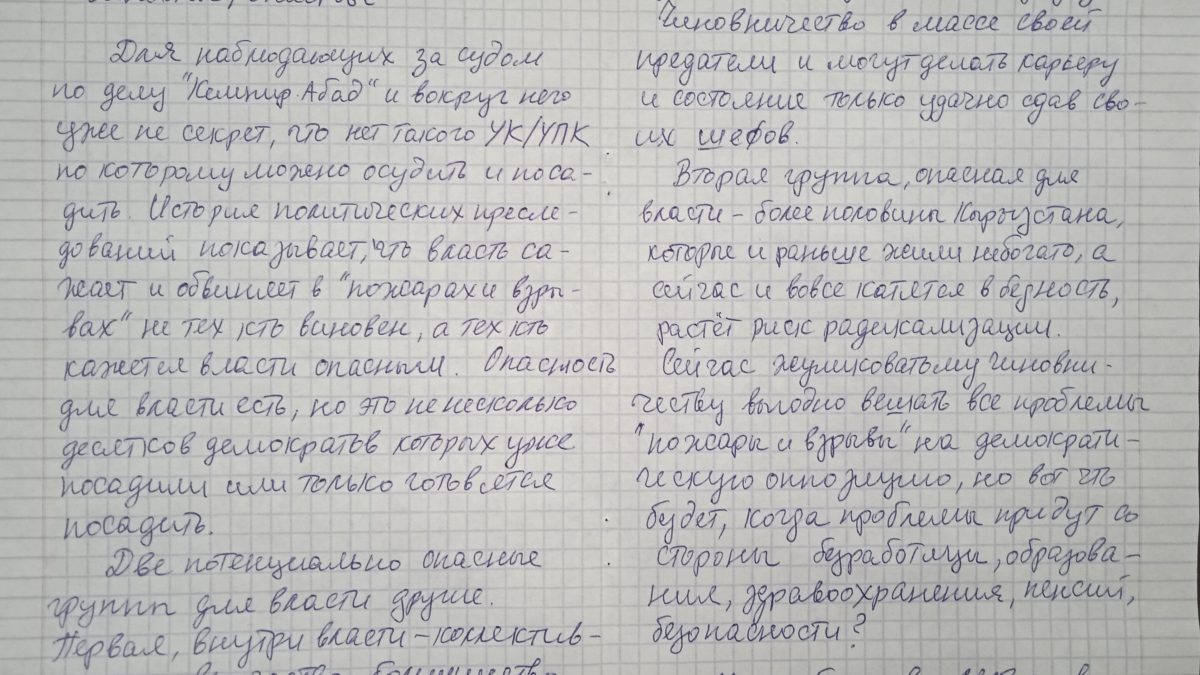 Для наблюдающих за судом
по делу "Кемпир-Абад" и вокруг него
уже не секрет, что нет такого УК/УПК
по которому можно осудить и поса-
дить. История политических пресле-
дований показывает, что власть са-
жает и обвиняет в "пожарах и взры-
вах" не тех, кто виновен, а тех кто
кажется власти опасным. Опасность
для власти есть, но это не несколько
десятков демократов которых уже
посадили или только готовятся
посадить.
Две потенциально опасные
группы для власти другие.
Первая, внутри власти - коллектив-
большинство
Чиновничество в массе своей
предатели и могут делать карьеру
и состояние только удачно сдав сво-
их шефов.
Вторая группа, опасная для
власти - более половины Кыргызстана,
которые и раньше жили небогато, а
сейчас и вовсе катятся в бедность,
растёт риск радикализации.
Сейчас жуликоватому чиновни-
честву выгодно вешать все проблемы
"пожары и взрывы" на демократи-
ческую оппозицию, но вот что
будет, когда проблемы придут со
стороны безработицы, образова-
ния, здравоохранения, пенсий,
безопасности?